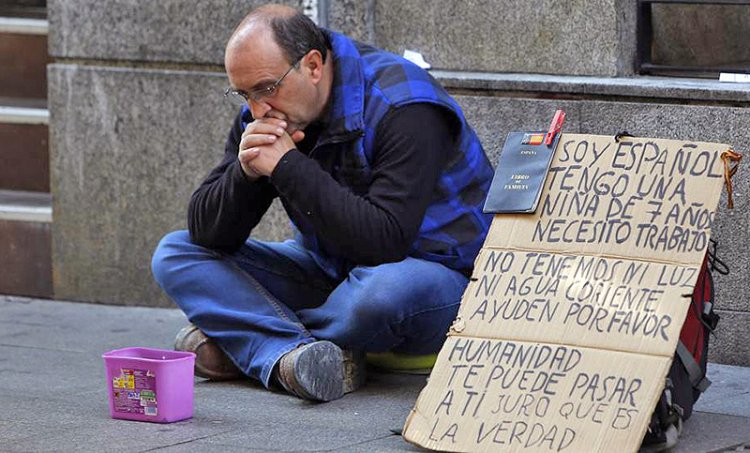 ESPAÑA
LIBRO
DE
FAMILIA
SOY ESPAÑOL
TENGO UNA
NIÑA DE 7 AÑOS
NECESITO TRABAJO
NO TENEMOS NI LUZ
NI AGUA CORIENTE
AYUDEN POR FAVOR
HUMANIDAD
TE PUEDE PASAR
A TI SURO QUE ES
LA VERDAD